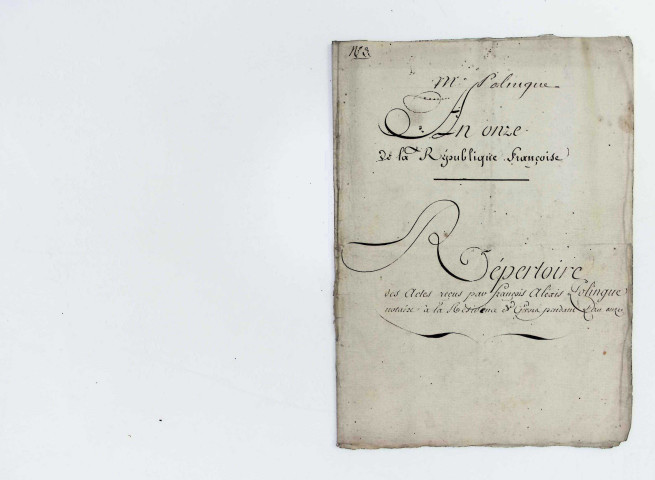 N° 3.
Mᵉ Polinque
An onze
de la République Françoise
Répertoire
des Actes reçus par françois Aléxis Polinque
notaire à la Résidence d' pendant l'an onze